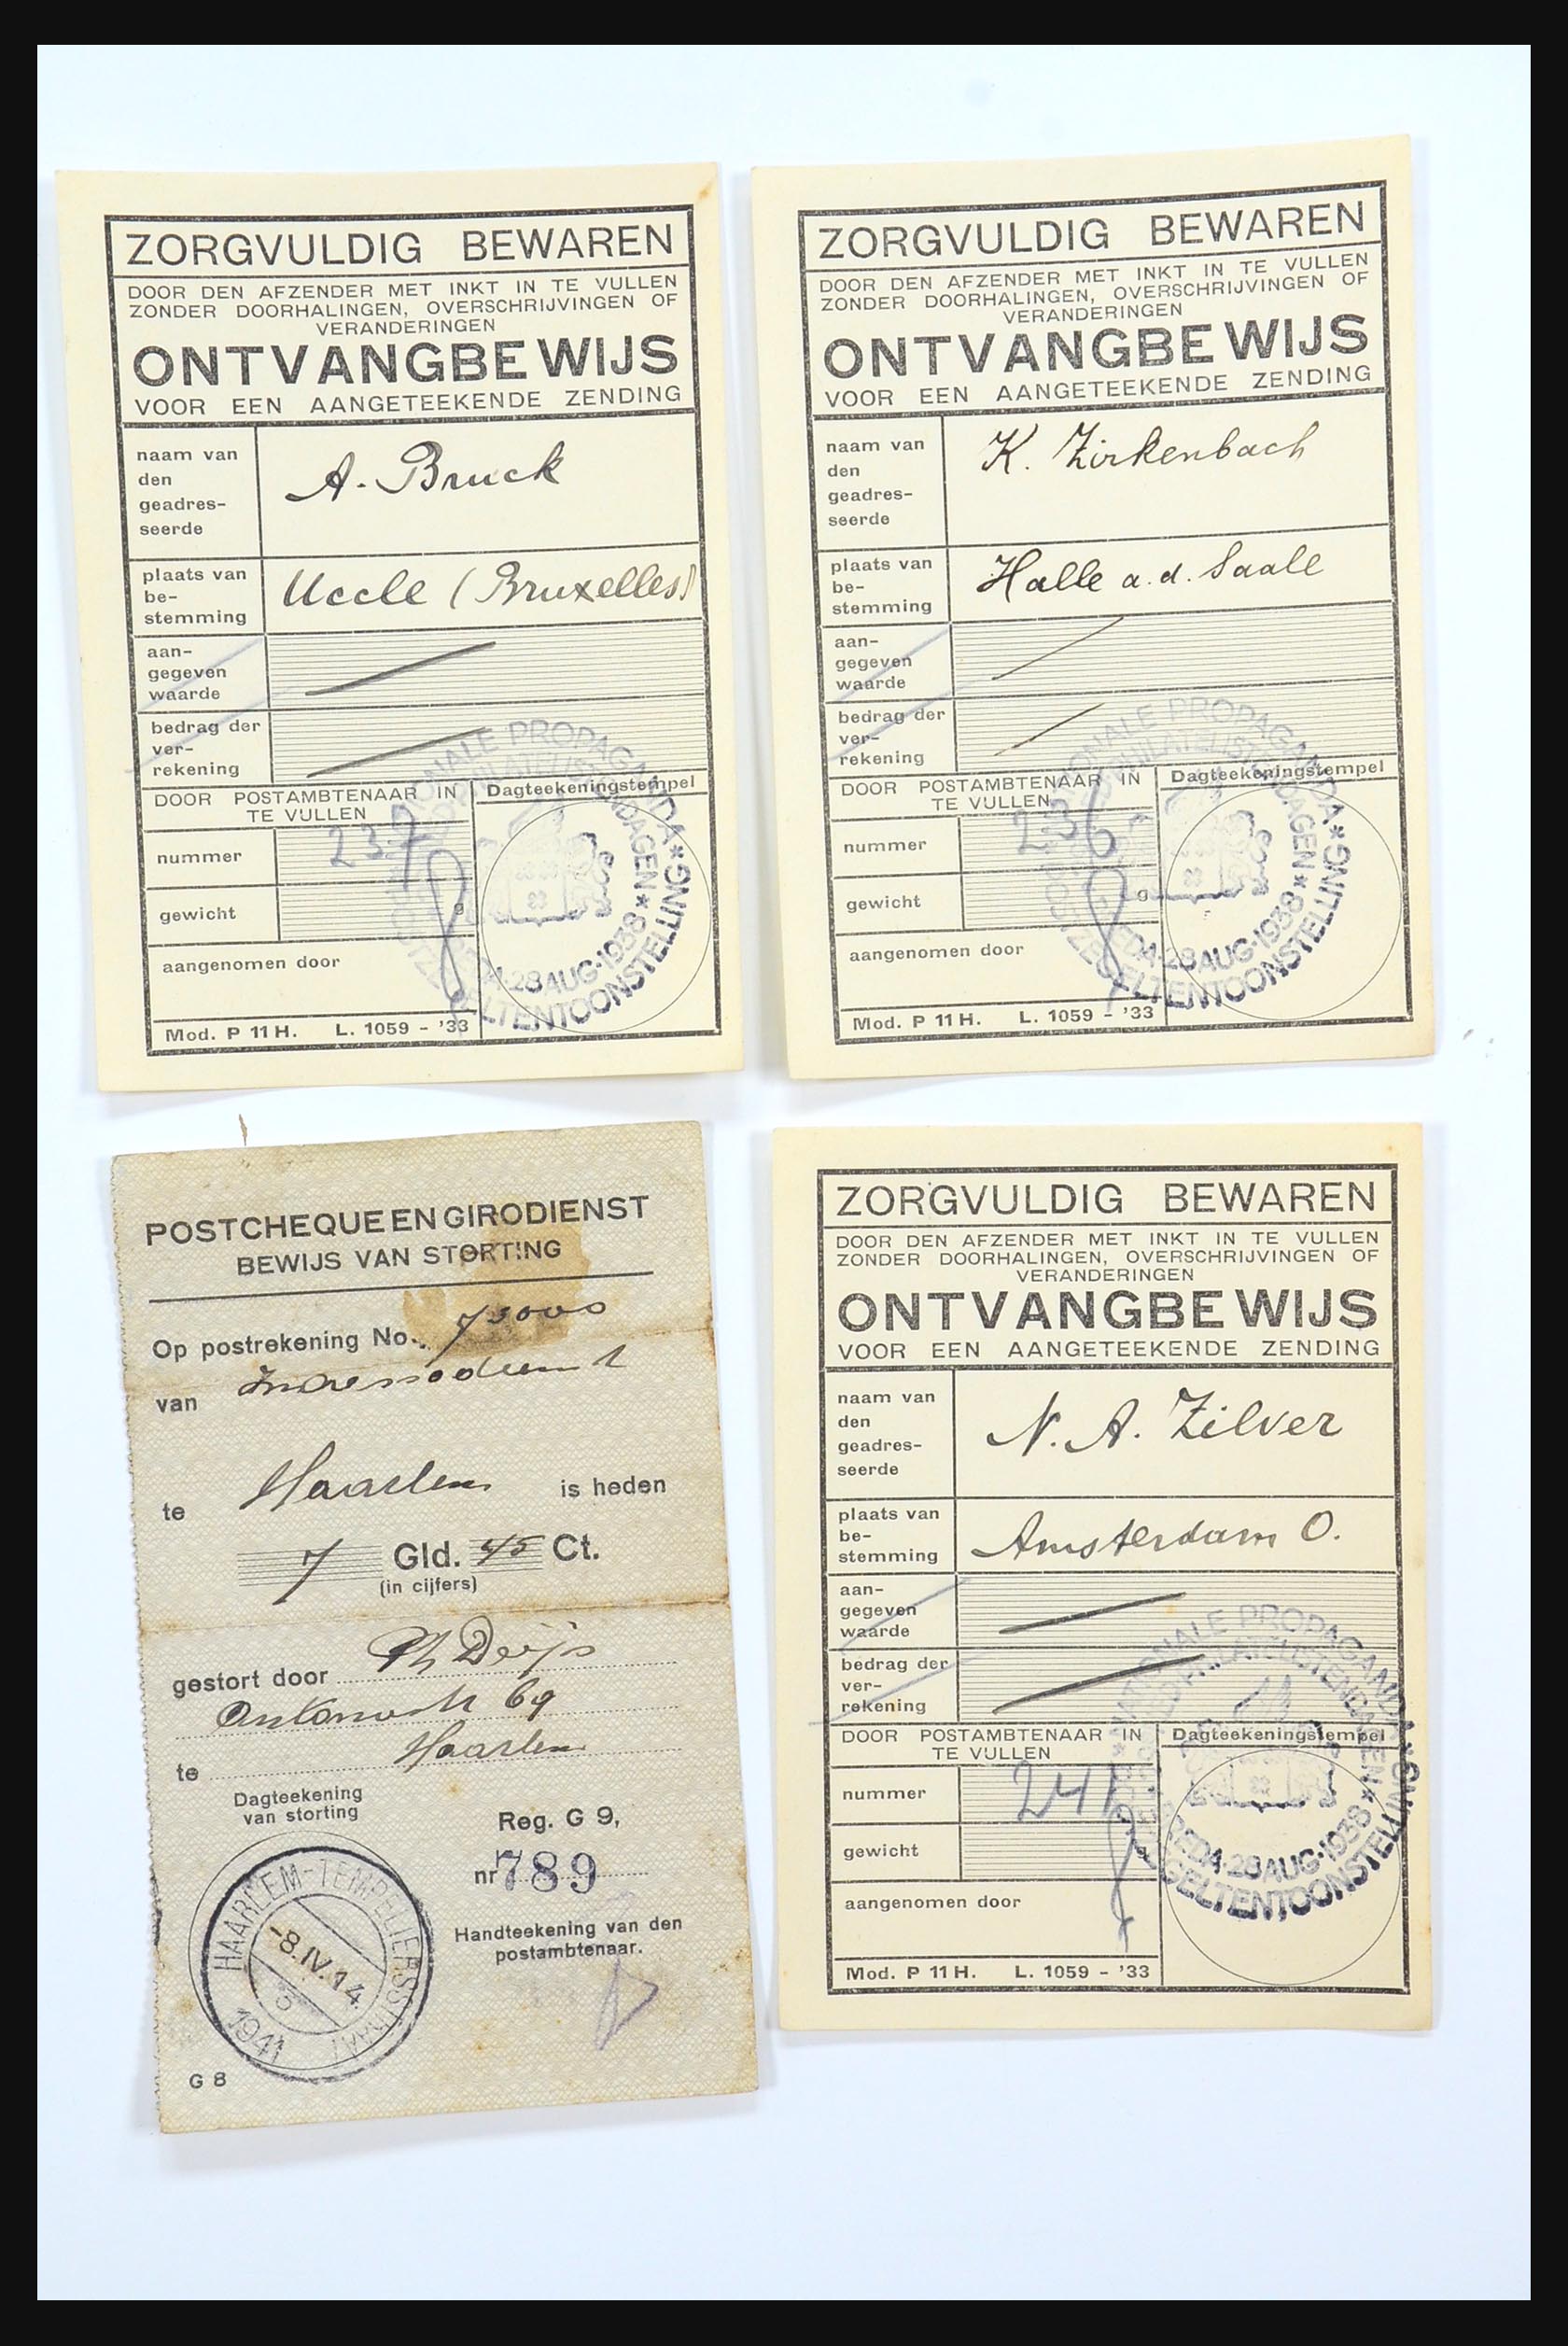 ZORGVULDIG BEWAREN
DOOR DEN AFZENDER MET INKT IN TE VULLEN
ZONDER DOORHALINGEN, OVERSCHRIJVINGEN OF
VERANDERINGEN
ONTVANGBEWIJS
VOOR EEN AANGETEEKENDE ZENDING
naam van
den
geadres-
seerde
A. Bruck
plaats van
be-
stemming
Uccle (Bruxelles)
aan-
gegeven
waarde
bedrag der
ver-
rekening
DOOR POSTAMBTENAAR IN
TE VULLEN
Dagteekeningstempel
nummer
237
gewicht
g
aangenomen door
Mod. P 11 H. L. 1059 - '33
NALE PROPAGANDA * 
28 AUG. 1938 *
ZORGVULDIG BEWAREN
DOOR DEN AFZENDER MET INKT IN TE VULLEN
ZONDER DOORHALINGEN, OVERSCHRIJVINGEN OF
VERANDERINGEN
ONTVANGBEWIJS
VOOR EEN AANGETEEKENDE ZENDING
naam van
den
geadres-
seerde
K. Zirkenbach
plaats van
be-
stemming
Halle a.d. Saale
aan-
gegeven
waarde
bedrag der
ver-
rekening
DOOR POSTAMBTENAAR IN
TE VULLEN
Dagteekeningstempel
nummer
236
gewicht
g
aangenomen door
Mod. P 11 H. L. 1059 - '33
ONALE PROPAGANDA *
EDA·28 AUG·1938 *
POSTCHEQUE EN GIRODIENST
BEWIJS VAN STORTING
Op postrekening No. 73000
van
te Haarlem is heden
7 Gld. 45 Ct.
(in cijfers)
gestort door Ph Deijs
69
te Haarlem
Dagteekening
van storting
Reg. G 9,
nr 789
Handteekening van den
postambtenaar.
HAARLEM-TEMPELIERSSTRAAT
-8.IV.14
5
1941
G 8
ZORGVULDIG BEWAREN
DOOR DEN AFZENDER MET INKT IN TE VULLEN
ZONDER DOORHALINGEN, OVERSCHRIJVINGEN OF
VERANDERINGEN
ONTVANGBEWIJS
VOOR EEN AANGETEEKENDE ZENDING
naam van
den
geadres-
seerde
N. A. Zilver
plaats van
be-
stemming
Amsterdam O.
aan-
gegeven
waarde
bedrag der
ver-
rekening
DOOR POSTAMBTENAAR IN
TE VULLEN
Dagteekeningstempel
nummer
241
gewicht
aangenomen door
Mod. P 11 H. L. 1059 - '33
IONALE PROPAGANDA *
REDA·28 AUG·1938 *